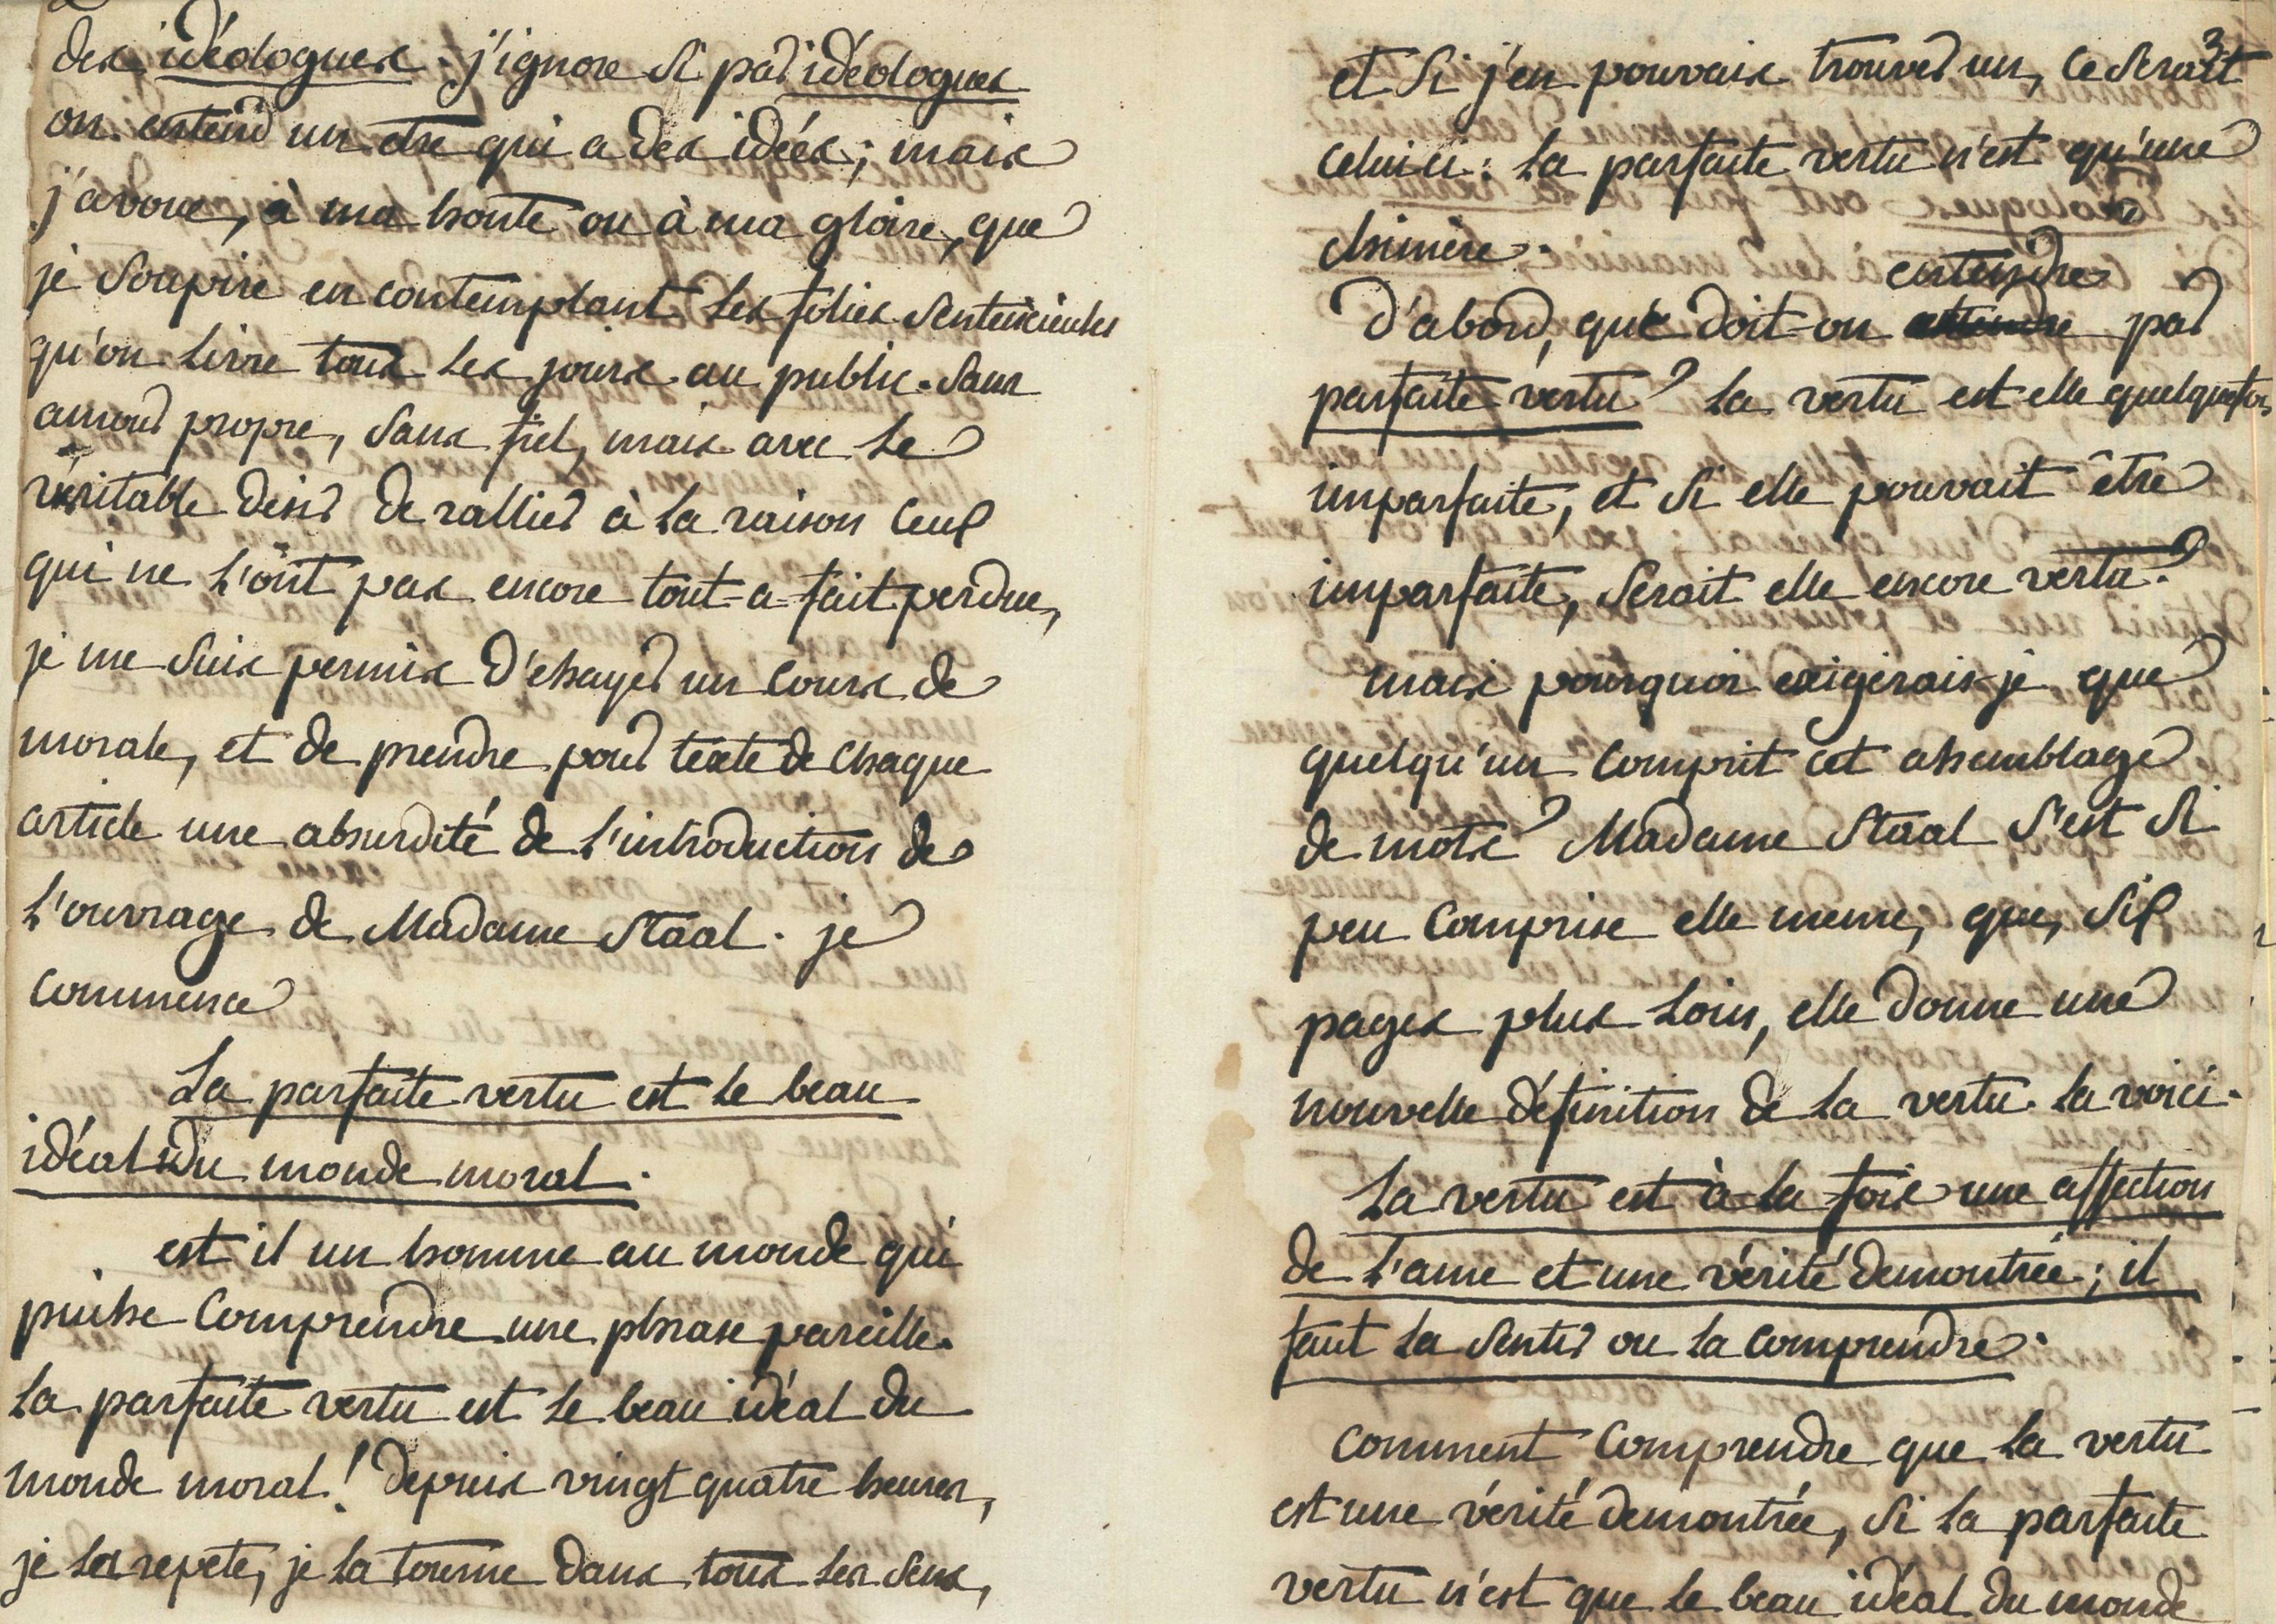 des idéologues. j'ignore si par idéologues
on entend un etre qui a des idées; mais
j'avoue, à ma honte ou à ma gloire, que
je soupire en contemplant les folies sentencieuses
qu'on livre tous les jours au public. sans
amour propre, sans fiel, mais avec le
véritable desir de rallier à la raison ceux
qui ne l'ont pas encore tout-a-fait perdue,
je me suis permis d'essayer un cours de
morale, et de prendre pour texte de chaque
article une absurdité de l'introduction de
l'ouvrage de Madame Staal. je
commence
La parfaite vertu est le beau
idéal du monde moral.
est il un homme au monde qui
puisse comprendre une phrase pareille.
la parfaite vertu est le beau idéal du
monde moral! depuis vingt quatre heures,
je la repete, je la tourne dans tous les sens,
3
et si j'en pouvais trouver un, ce serait
celui ci: la parfaite vertu n'est qu'une
chimère.
entendre
D'abord, que doit-on attendre par
parfaite vertu? la vertu est elle quelquefois
imparfaite, et si elle pouvait être
imparfaite, serait elle encore vertu?
mais pourquoi exigerais-je que
quelqu'un comprit cet assemblage
de mots? Madame Staal s'est si
peu comprise elle meme, que, six
pages plus loin, elle donne une
nouvelle définition de la vertu. la voici.
la vertu est à la fois une affection
de l'ame et une vérité demontrée; il
faut la sentir ou la comprendre.
comment comprendre que la vertu
est une vérité demontrée, si la parfaite
vertu n'est que le beau idéal du monde